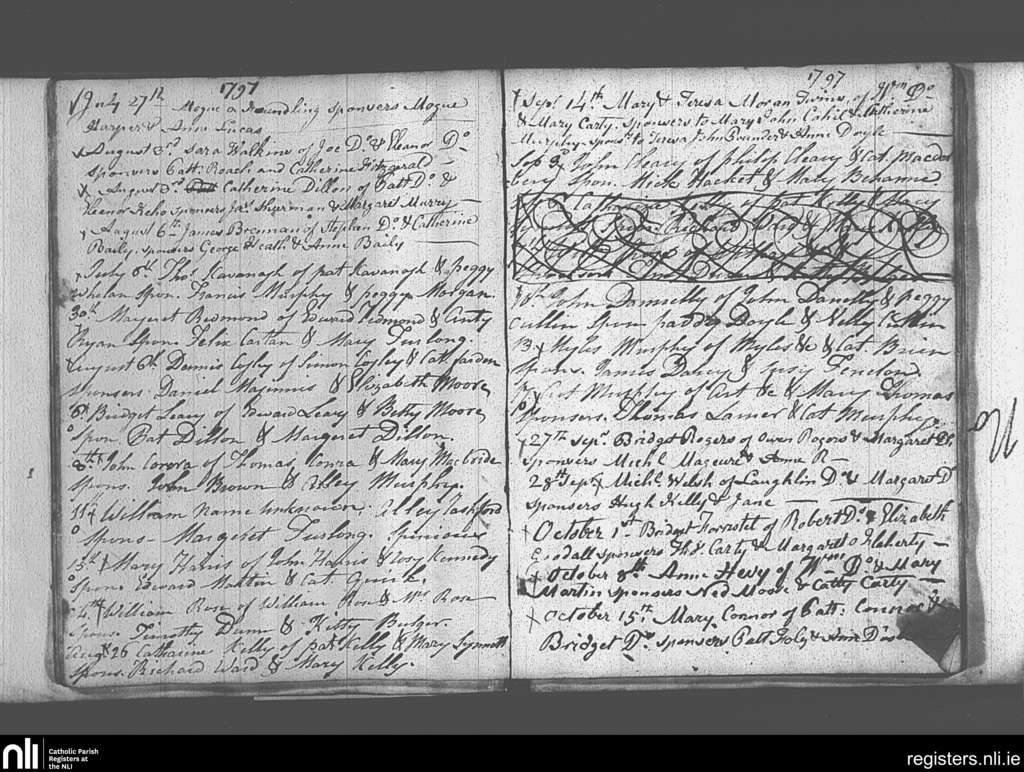 1797
July 27th Mogue a Foundling sponsers Mogue
Harper & Anne Lucas
August 3rd Sara Walkins of Joe Do & Eleanor Do
sponsers Patt: Roach and Catherine Fitzgerald
August Catherine Dillon of Patt Do &
Eleanor Keho sponsers Jas. Sherman & Margaret Murry
August 6th James Brennan of Stephen Do & Catherine
Baily sponsers George Heath & Anne Baily
July Thos Kavanagh of pat Kavanagh & peggy
Whelan Spon. Francis Murphy & peggy Morgan.
30th Margeret Redmond of Edward Redmond &
Ryan Spon. Felix Cartan & Mary Furlong.
August 6th Dennis of Simon & Cath
sponsers. Daniel Maginnis & Elizabeth Moore
6th Bridget Leary of Edward Leary & Betty Moore
Spon. Pat Dillon & Margeret Dillon.
8th John of Thomas & Mary
Spons. John Brown & Alley Murphy.
11 William name unknown. Alley
Spons - Margeret Furlong. Spurious
13th Mary Harris of John Harris & Rosy Kennedy
Spon. Edward Martin & Cat Quirk.
William Rose of William Rose & Mrs Rose
Spons. Timothy Dunn & Kitty Bulger.
Augt 26 Catharine Kelly of pat Kelly & Mary Synnott
Spons. Richard Ward & Mary Kelly.
1797
Sept 14th Mary & Teresa Moran Twins of Wm Do
& Mary Carty. Sponsers to Mary John Cahil & Catherine
Murphy. Sponrs to Teresa John Pounder & Anne Doyle
Sep John Cleary of philip Cleary & Cat.
Spon. Mick Hacket & Mary
John Donnelly of John Donelly & peggy
Cullen Spon paddy Doyle & Nelly Cullen
13. Myles Murphy of Myles &c & Cat. Brien
Spons. James Darcy & Fenelon
Murphy of &c & Mary Thomas
Sponsers. Thomas Lamer & Cat Murphy.
27th Sepr. Bridget Rogers of Owen Rogers & Margaret Do
sponsers Michl & Anne R—
28th Sept Michl Welsh of Laughlin Do & Margaret Do
sponsers Hugh Kelly & Jane
October 1st Bridget Forrestel of Robert Do & Elizabeth
Goodall sponsers Carty & Margaret Flaherty
October 8th Anne Hevy of Wm Do & Mary
Martin sponsers Ned Moore & Catty Carty
October 15th Mary Connor of Patt: Connor &
Bridget Do sponsers Patt Foly & Anne
nli
Catholic Parish
Registers at
the NLI
registers.nli.ie